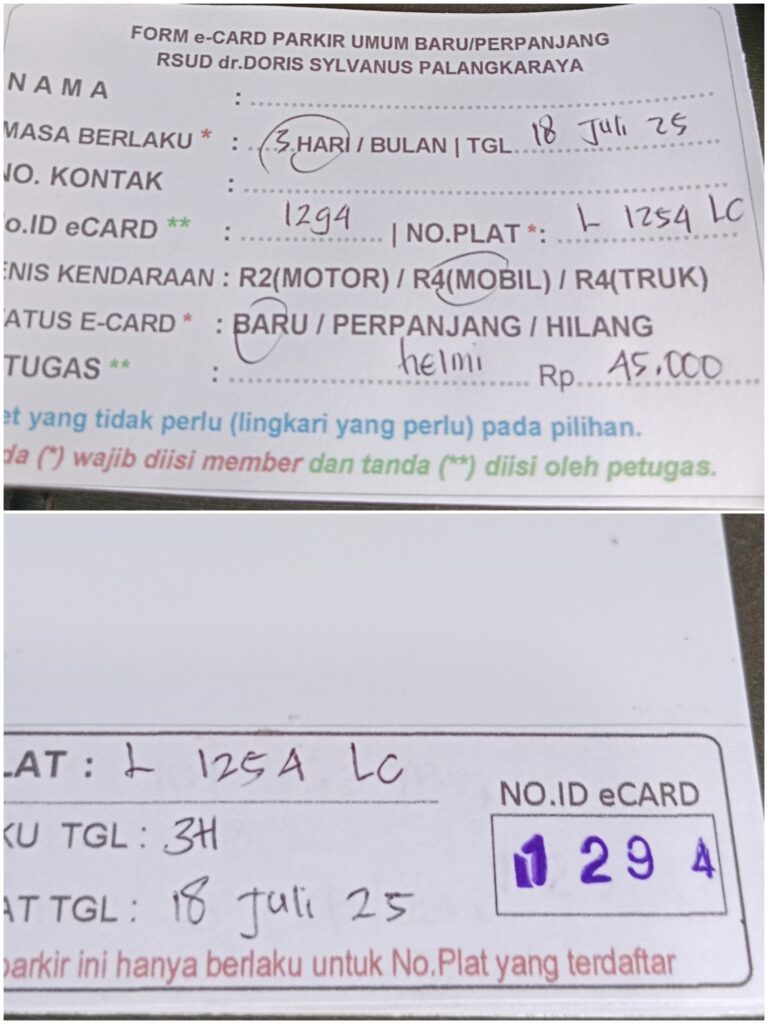 FORM e-CARD PARKIR UMUM BARU/PERPANJANG
RSUD dr.DORIS SYLVANUS PALANGKARAYA
NAMA :
MASA BERLAKU * : 3 HARI / BULAN | TGL 18 Juli 25
NO. KONTAK :
o.ID eCARD ** : 1294 | NO.PLAT *: L 1254 LC
ENIS KENDARAAN : R2(MOTOR) / R4(MOBIL) / R4(TRUK)
ATUS E-CARD * : BARU / PERPANJANG / HILANG
TUGAS ** : helmi Rp. 45.000
et yang tidak perlu (lingkari yang perlu) pada pilihan.
da (*) wajib diisi member dan tanda (**) diisi oleh petugas.
LAT : L 1254 LC
NO.ID eCARD
KU TGL : 3H
1294
AT TGL : 18 Juli 25
parkir ini hanya berlaku untuk No.Plat yang terdaftar